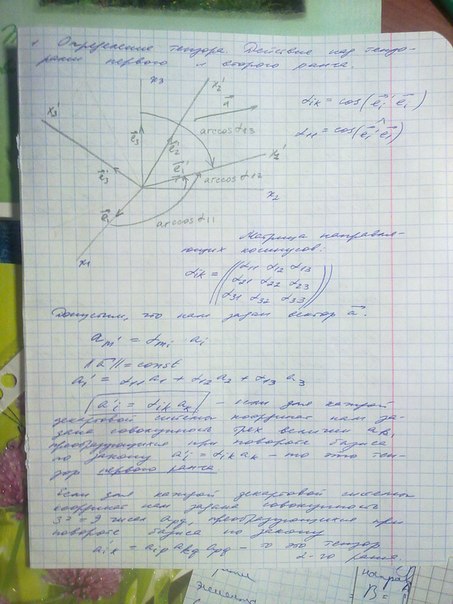 1 Определение тензора. Действие над тензо-
рами первого и второго ранга.
x3
x2'
x3'
a⃗
αik = cos(e⃗i' e⃗i)
α11 = cos(e⃗i' e⃗i)
e⃗3
e⃗2
arccos α13
x1'
e⃗3'
e⃗1'
arccos α12
e⃗1
x2
arccos α11
x1
Матрица направля-
ющих косинусов.
αik = ((α11 α12 α13
α21 α22 α23
α31 α32 α33))
Допустим, что нам задан вектор a⃗.
am' = αmi ai
||a⃗|| = const
a1' = α11 a1 + α12 a2 + α13 a3
a'i = αik ak - если для каждой
декартовой системы координат нам за-
дана совокупность трех величин ak,
преобразующихся при повороте базиса
по закону a'i = αik ak - то это тен-
зор первого ранга
Если для каждой декартовой системы
координат нам задана совокупность
3² = 9 чисел apq, преобразующихся при
повороте базиса по закону
aik = aip akq apq - то это тензор
2-го ранга.
B =